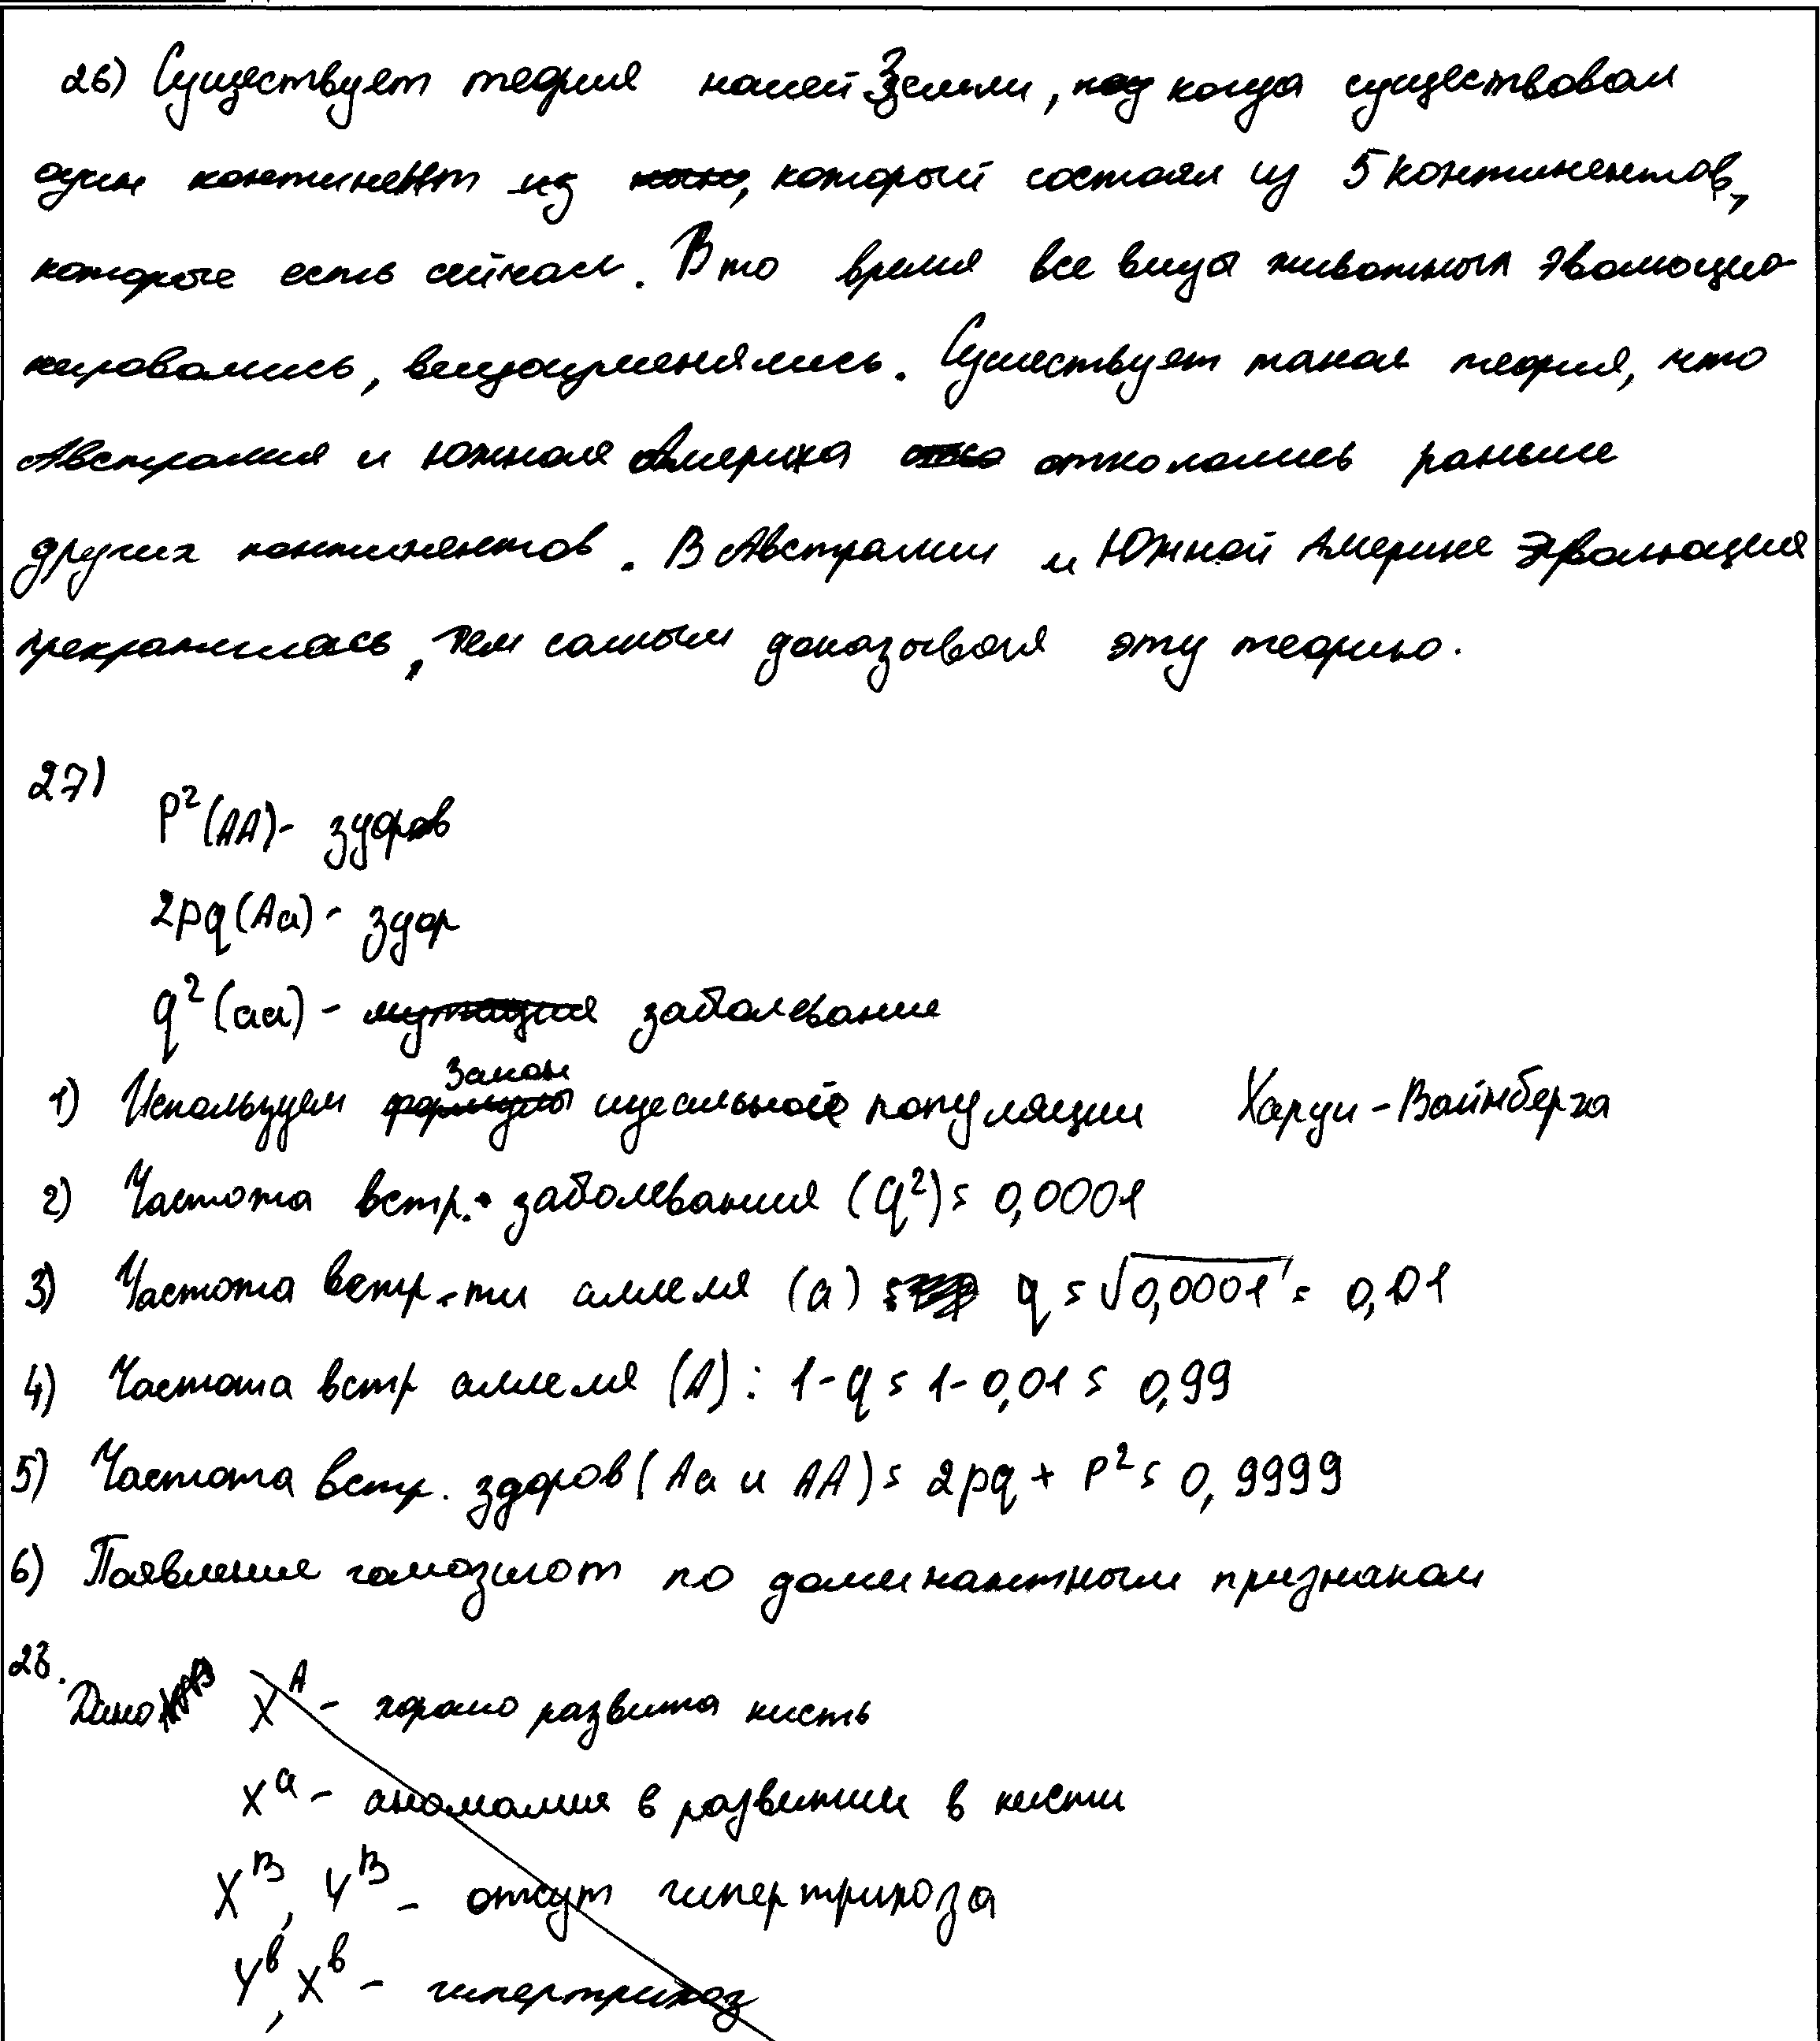 26) Существует теория нашей Земли, когда существовал
один континент из, который состоял из 5 континентов,
которые есть сейчас. В то время все виды животных эволюцио-
нировались, видоизменялись. Существует такая теория, что
Австралия и Южная Америка откололись раньше
других континентов. В Австралии и Южной Америке эволюция
прекратилась, тем самым доказывая эту теорию.
27)
P²(AA) - здоров
2pq(Aa) - здор
q²(aa) - мутация заболевание
закон
1) Используем формулы идеальной популяции Харди-Вайнберга
2) Частота встр. заболевания (q²) = 0,0001
3) Частота встр-ти аллеля (a) q = √0,0001 = 0,01
4) Частота встр аллеля (A): 1-q = 1-0,01 = 0,99
5) Частота встр. здоров (Aa и AA) = 2pq + P² = 0,9999
6) Появление гомозигот по доминантным признакам
28.
Дано X^A - хорошо развита кисть
X^a - аномалия в развитии в кисти
X^B, Y^B - отсут гипертрихоза
Y^b, X^b - гипертрихоз